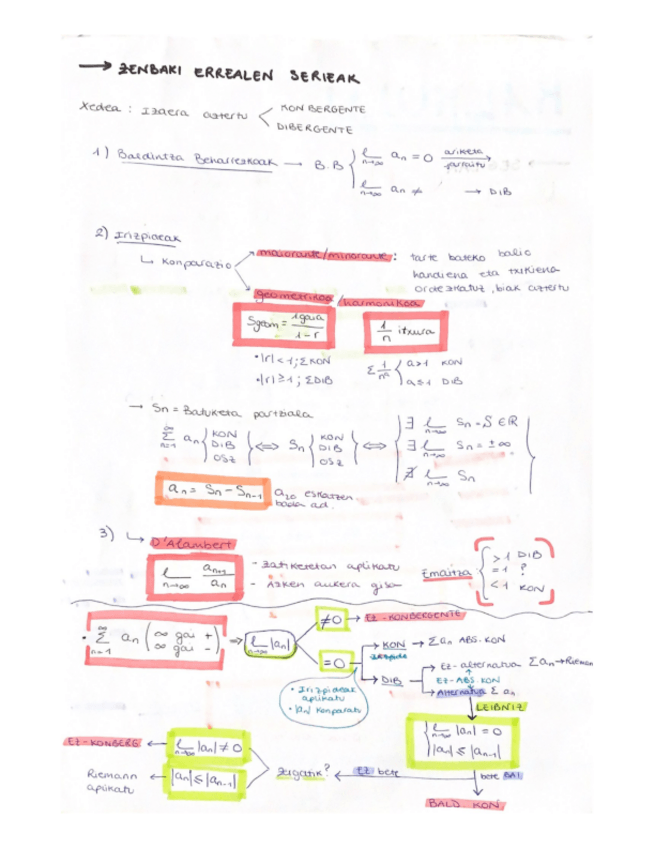 → ZENBAKI ERREALEN SERIEAK
Xedea : Izaera aztertu < KONBERGENTE
DIBERGENTE
1) Baldintza Beharrezkoak → B.B { l n→∞ an = 0 ariketa jarraitu →
l n→∞ an ≠ → DIB
2) Irizpideak
↳ Konparazio
majorante/minorante : tarte bateko balio
handiena eta txikiena
ordezkatuz, biak aztertu
geometrikoa / harmonikoa
Sgeom = 1gaia / 1-r
1/n itxura
• |r| < 1 ; ΣKON
• |r| ≥ 1 ; ΣDIB
Σ 1/n^a { a>1 KON
a≤1 DIB
→ Sn = Batuketa partziala
∞ Σ n=1 an { KON DIB OSZ ⟺ Sn { KON DIB OSZ ⟺ { ∃ l n→∞ Sn = S ∈ R
∃ l n→∞ Sn = ±∞
∄ l n→∞ Sn
an = Sn - Sn-1 a20 eskatzen
bada ad.
3) ↳ D'Alambert
l n→∞ an+1 / an
- Zatiketetan aplikatu
- Azken aukera gisa
Emaitza { > 1 DIB
= 1 ?
< 1 KON
• ∞ Σ n=1 an ( ∞ gai +
∞ gai - ) ⇒ l n→∞ |an|
≠0 → EZ-KONBERGENTE
=0
→ KON → Σ an ABS. KON
Irizpide
→ DIB → Ez-alternatua Σ an → Rieman
EZ-ABS. KON
→ Alternatua Σ an
• Irizpideak
aplikatu
• |an| konparatu
LEIBNIZ
{ l n→∞ |an| = 0
|an| ≤ |an-1|
EZ-KONBERG ← l n→∞ |an| ≠ 0
Riemann ← |an| ≤ |an-1|
aplikatu
Zergatik? ← EZ bete
bete BAI
BALD. KON